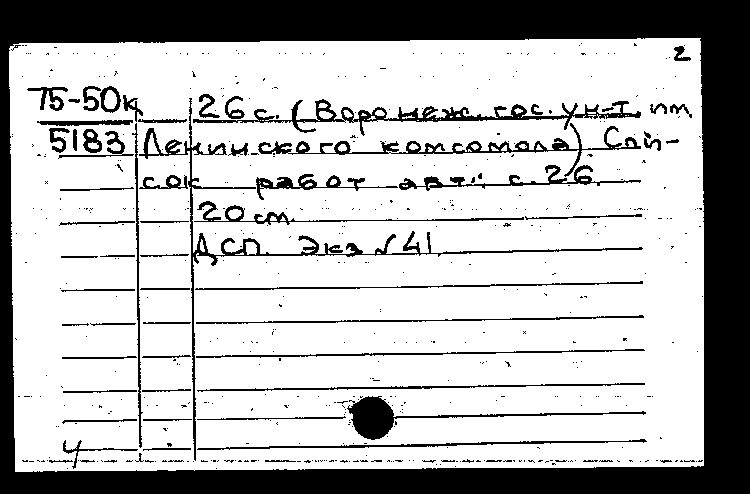 2
75-50к 26 с. (Воронеж. гос. ун-т. им.
5183 Ленинского комсомола). Спи-
сок работ авт.: с. 26.
20 см.
ДСП. Экз № 41
4